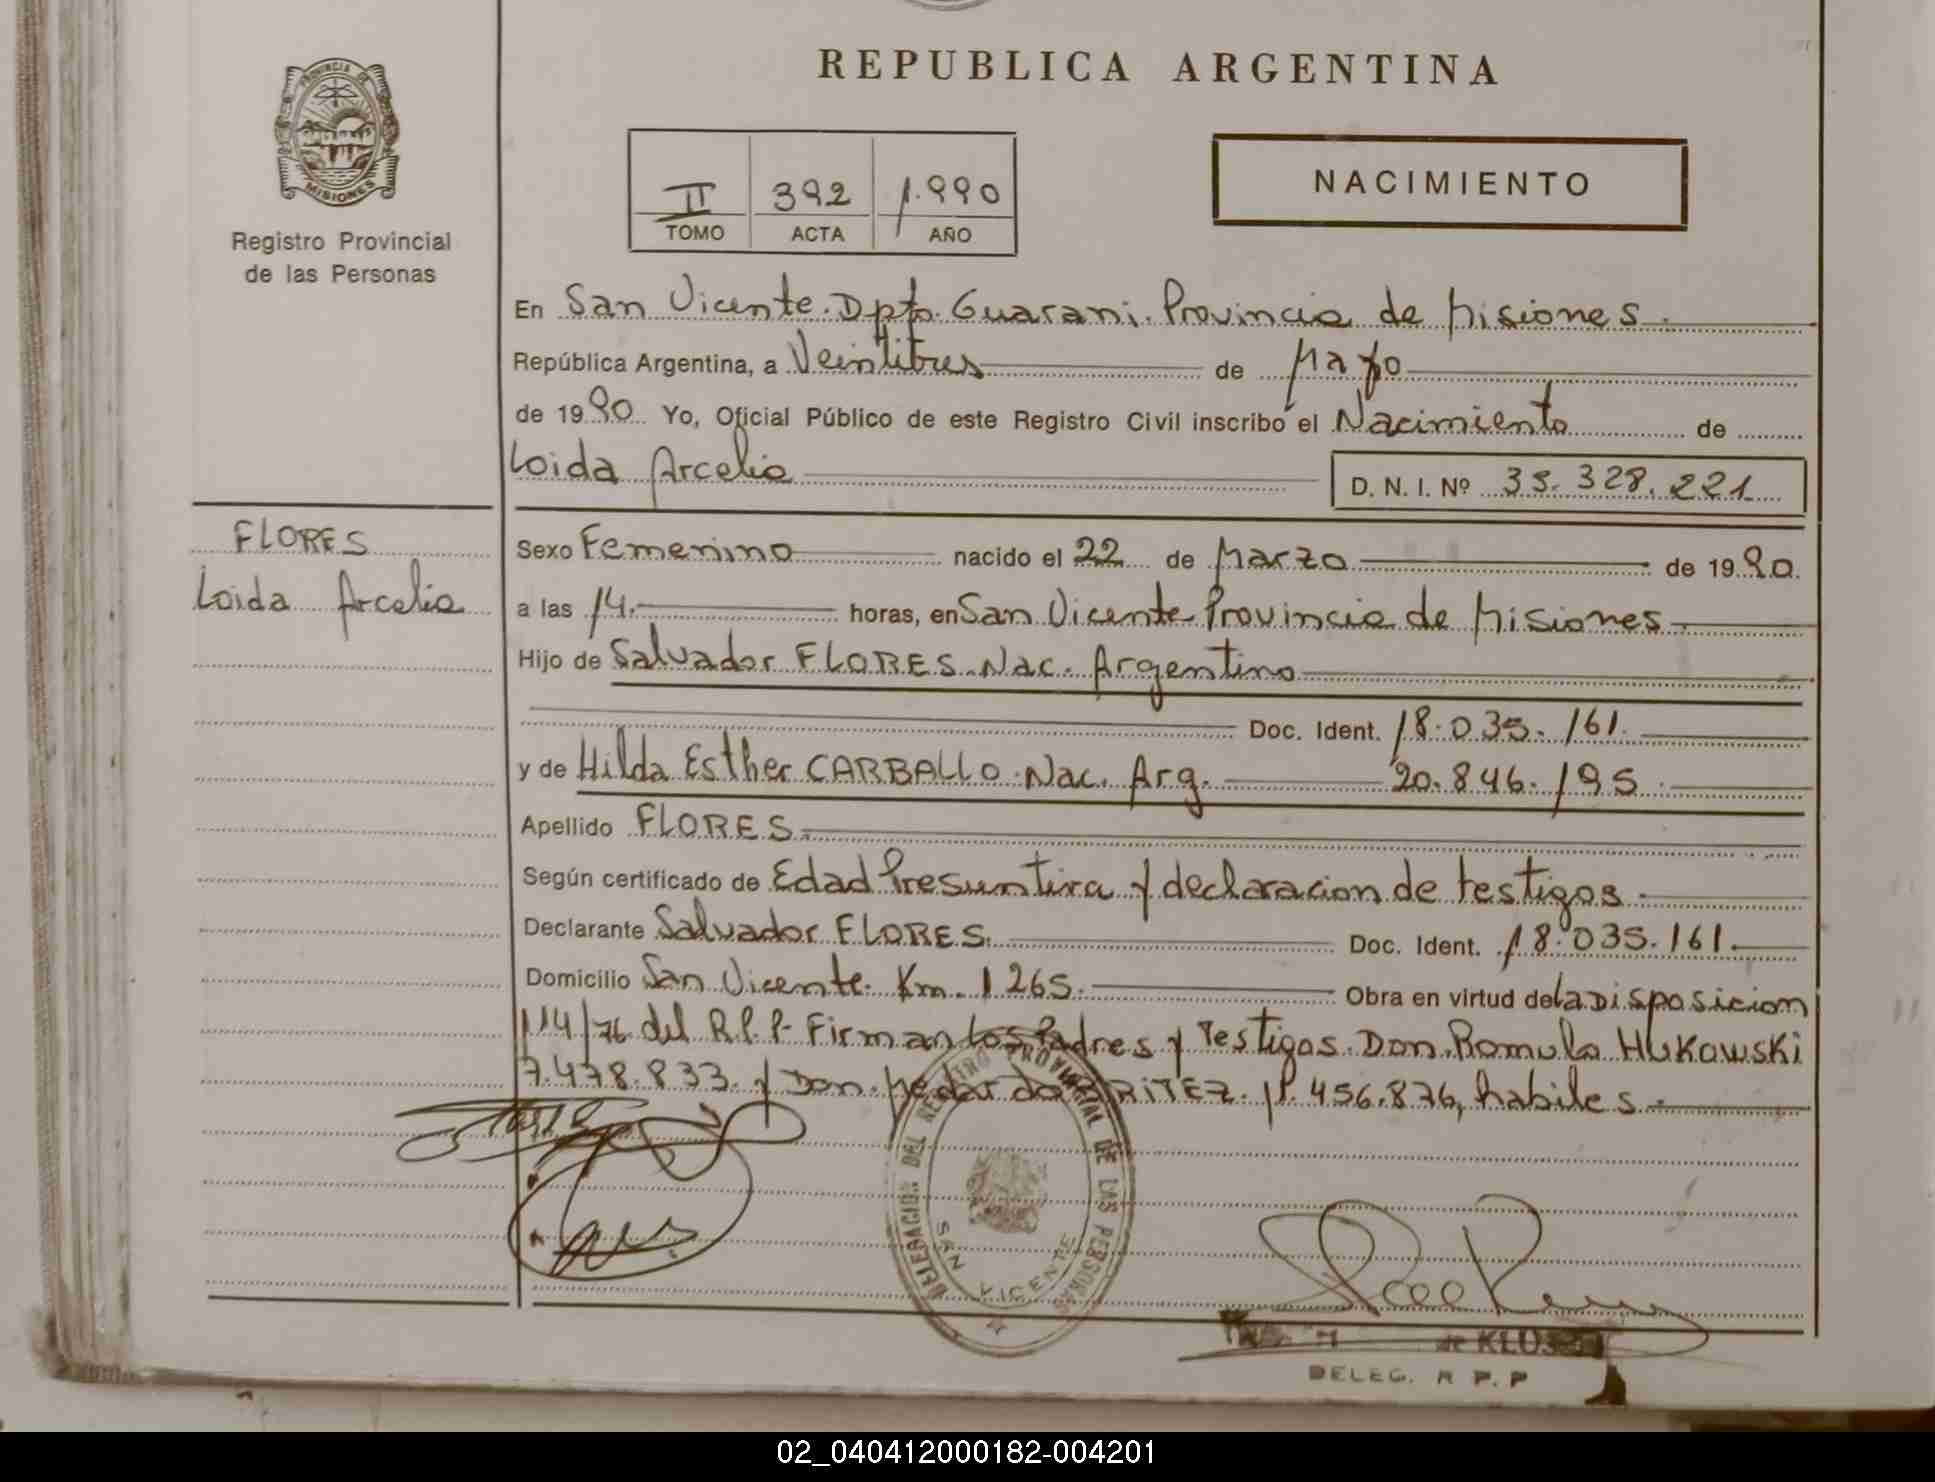 REPUBLICA ARGENTINA
PROVINCIA DE
MISIONES
Registro Provincial
de las Personas
II 392 1.990
TOMO ACTA AÑO
NACIMIENTO
En San Vicente. Dpto. Guarani. Provincia de Misiones.
República Argentina, a Veintitres de Mayo
de 1990 Yo, Oficial Público de este Registro Civil inscribo el Nacimiento de
Loida Arcelia
D. N. I. Nº 35.328.221
FLORES
Loida Arcelia
Sexo Femenino nacido el 22 de Marzo de 1990.
a las 14. horas, en San Vicente Provincia de Misiones.
Hijo de Salvador FLORES. Nac. Argentino
Doc. Ident. 18.035.161.
y de Hilda Esther CARBALLO. Nac. Arg. 20.846.195.
Apellido FLORES.
Según certificado de Edad Presuntiva y declaracion de testigos.
Declarante Salvador FLORES. Doc. Ident. 18.035.161.
Domicilio San Vicente. Km. 1265. Obra en virtud de la Disposicion
114/76 del R.P.P. Firman los Padres y Testigos. Don. Romulo HUKOWSKI
7.478.833. y Don. Medardo 456.876, habiles.
DEL REGISTRO PROVINCIAL DE LAS PERSONAS
SAN VICENTE
DELEG. R P. P
02_040412000182-004201